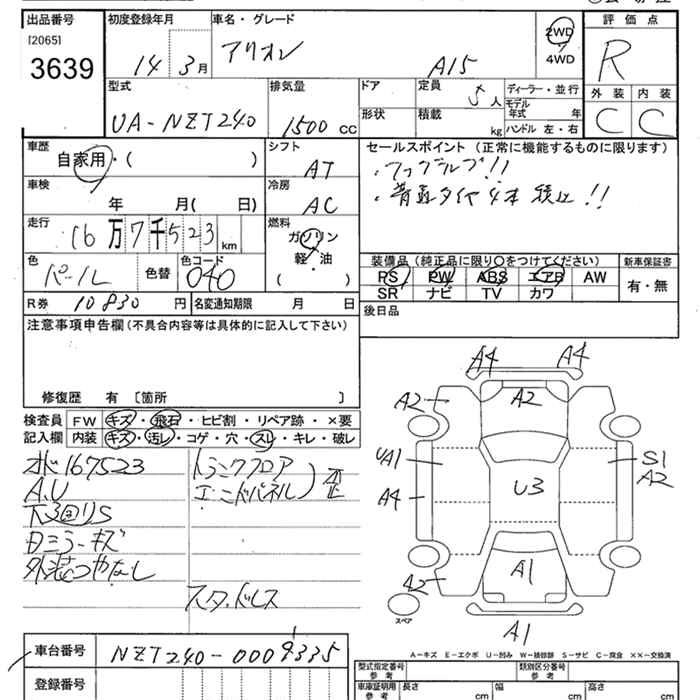 出品番号 初度登録年月 車名・グレード 評価点
[2065]
3639 14 3月 アリオン A15 2WD 4WD R
型式 排気量 ドア 定員 5人 ディーラー・並行
外装 内装
UA-NZT240 1500 CC 形状 積載 kg モデル年式 年 ハンドル 左・右 C C
車歴 自家用・( ) シフト AT
セールスポイント (正常に機能するものに限ります)
・ワンプライス!!
車検 年 月( 日) 冷房 AC
走行 16万7千523 km 燃料 ガソリン 軽・油 ( )
装備品 (純正品に限り○をつけてください) 新車保証書
PS PW ABS エアB AW 有・無
SR ナビ TV カワ
色 パール 色替 色コード 040
R券 10830 円 名変通知期限 月 日
後日品
注意事項申告欄 (不具合内容等は具体的に記入して下さい)
修復歴 有 〔箇所 〕
検査員 FW キズ・飛石・ヒビ割・リペア跡・×要
記入欄 内装 キズ・汚レ・コゲ・穴・スレ・キレ・破レ
167523
A,U
下回りS
ミラーキズ
外装つやなし
トランクフロア
エンドパネル
歪
スタッドレス
A4 A4
A2 A2
UA1 S1
A2
A4 U3
A2 A1
スペア
A1
A-キズ E-エクボ U-凹み W-補修跡 S-サビ C-腐食 ××-交換済
車台番号 NZT240-0009335
登録番号
型式指定番号 参考 類別区分番号 参考
車庫証明用 参考 長さ cm 幅 cm 高さ cm